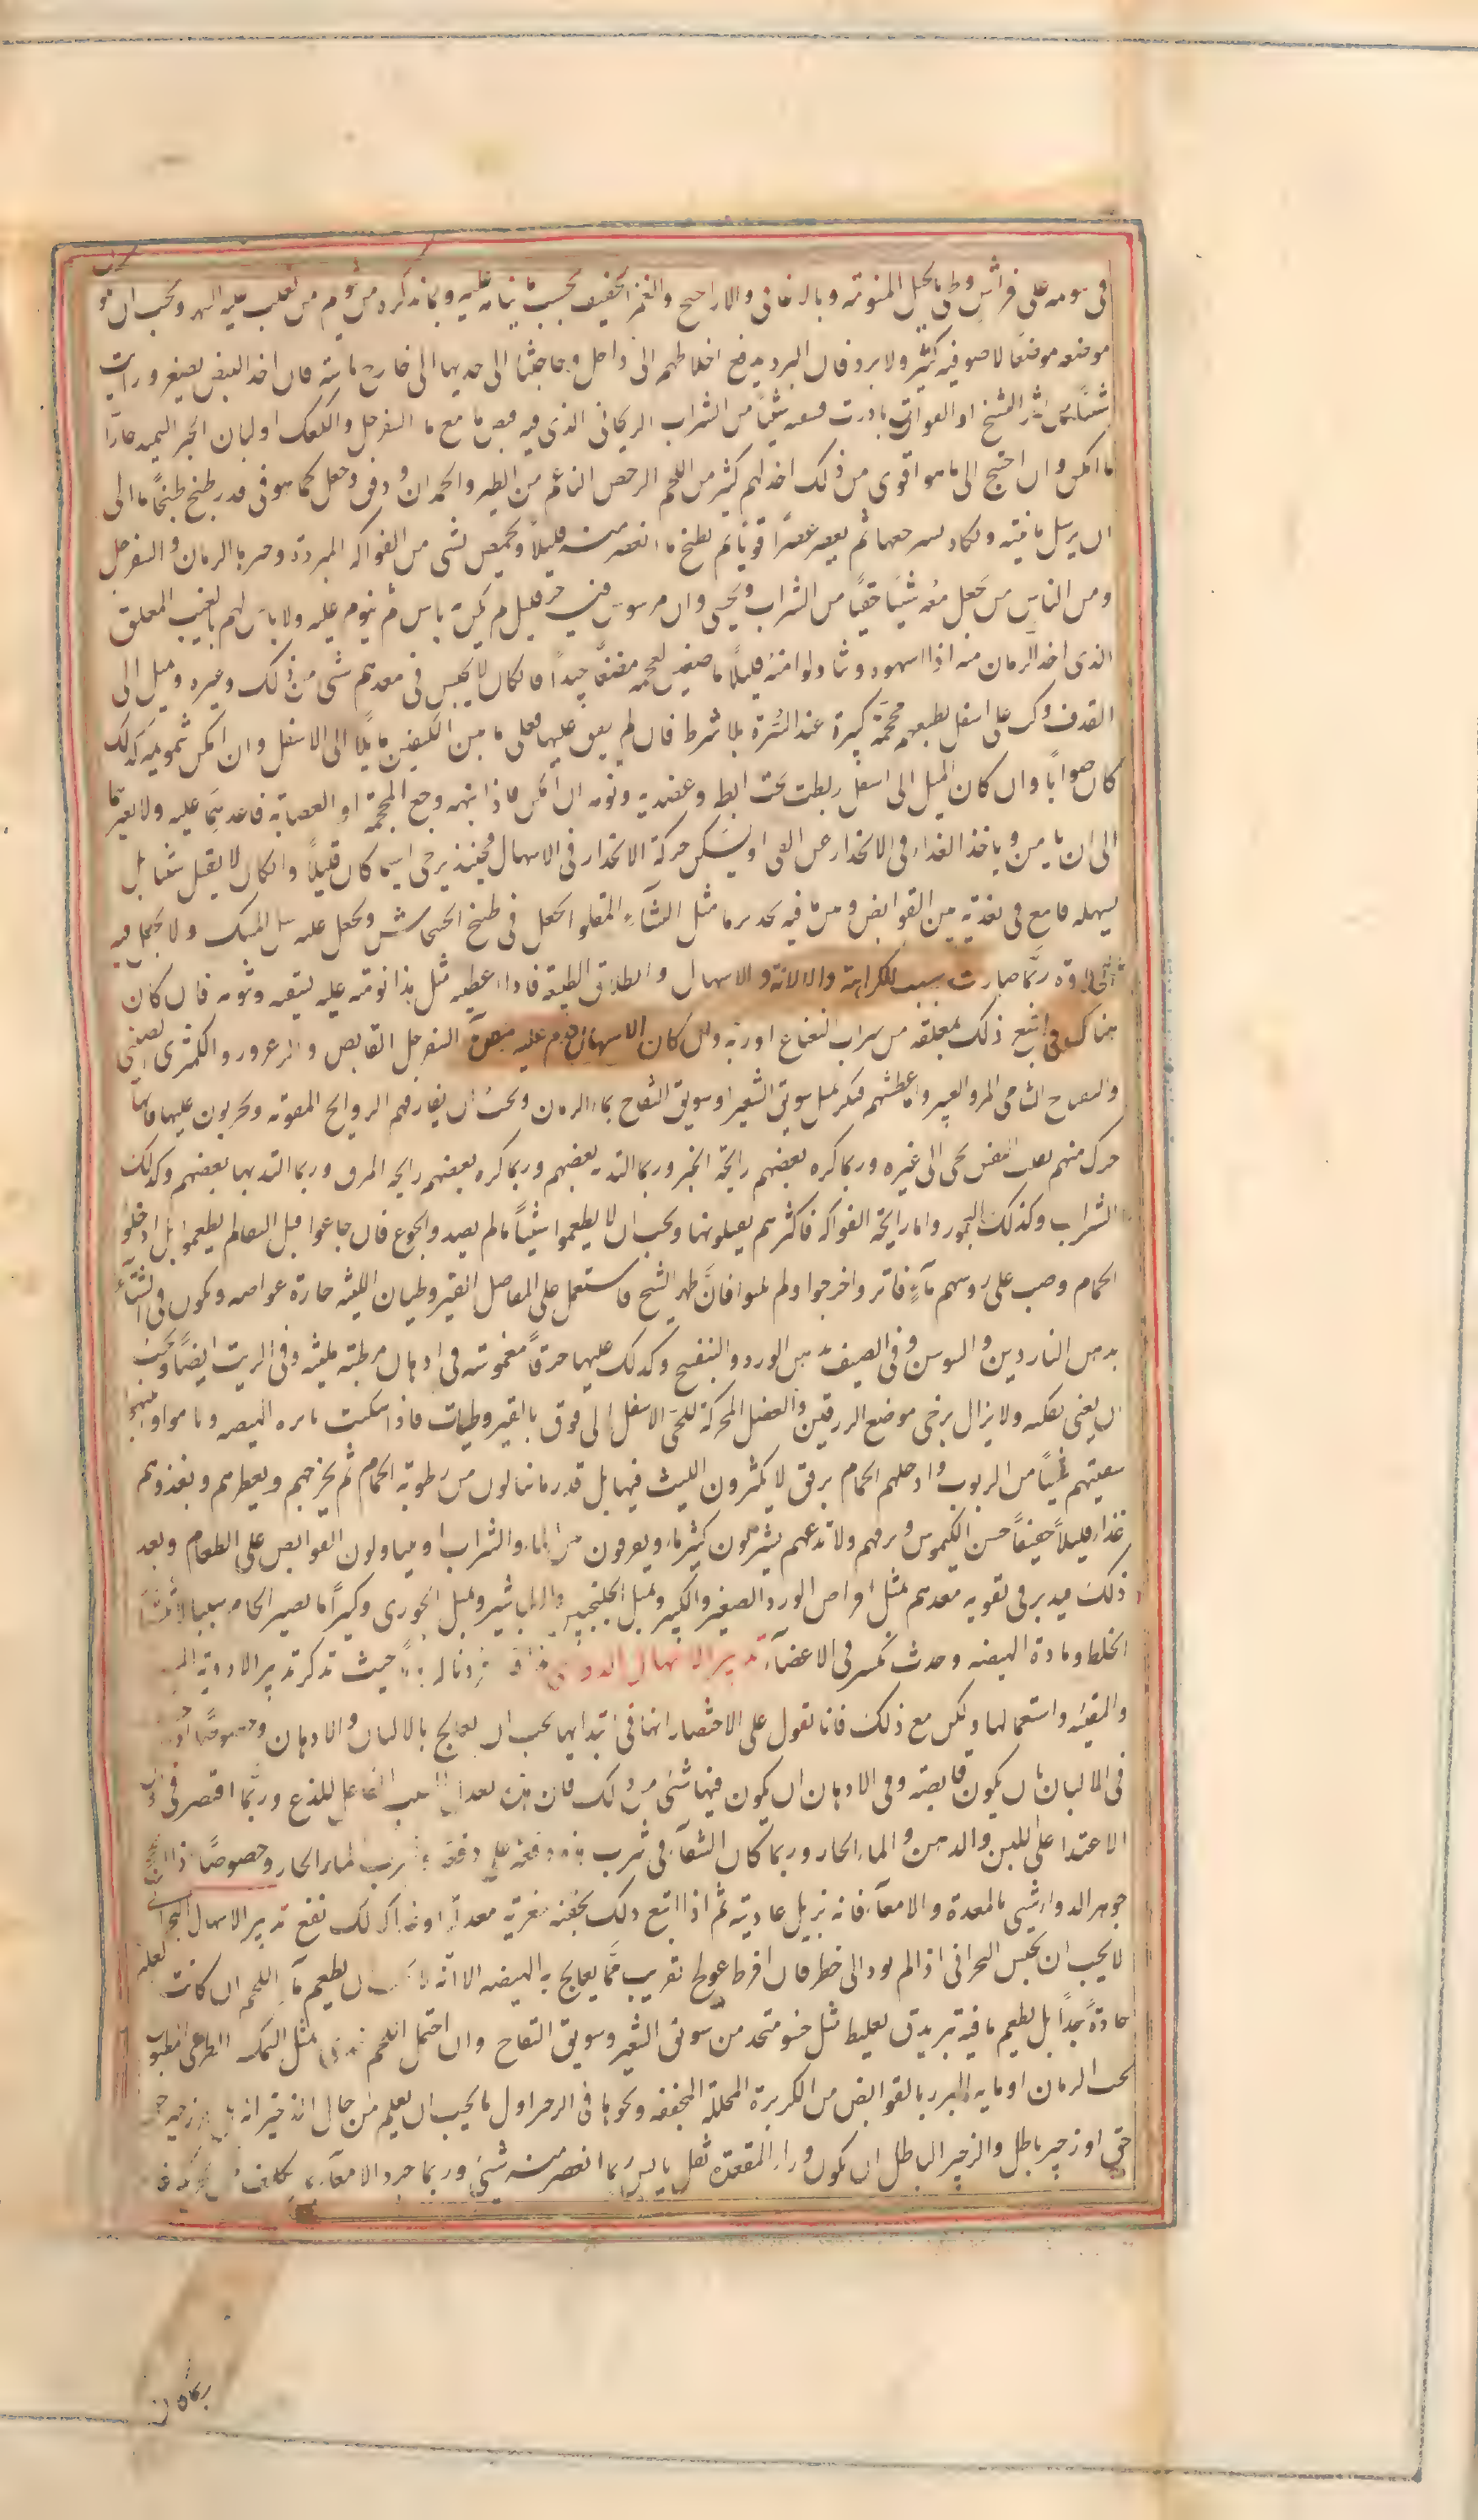 في نومه على فراش وطئ بالحيل المنومة وبالاغاني والاراجيح والغمز الخفيف بحسب ما ينام عليه وبما نذكره من نوم من تغلب عليه السهر ويجب ان يكون
موضعه موضعا لا ضو فيه كثير ولا برد فان البرد يدفع اخلاطهم الى داخل وحاجتنا الى جذبها الى خارج ماسة فان اخذ النبض يصغر ورايت
شيئا من اثر التشنج او الفواق بادرت فسقيته شيئا من الشراب الريحاني الذي فيه قبض ما مع ماء السفرجل والكعك او لباب الخبز السميد حارا
ما امكن وان احتيج الى ما هو اقوى من ذلك اخذ لهم كثير من اللحم الرخص الناعم من الطير والحملان ودق وجعل كما هو في قدر وطبخ طبخا ما الى
ان يرسل مائيته ويكاد يسترجعها ثم يعصر عصرا قويا ثم يطبخ ما انعصر منه قليلا ويحمض بشي من الفواكه المبردة وخيرها الرمان والسفرجل
ومن الناس من يجعل معه شيئا خفيا من الشراب ويحسى وان مرس فيه خبز قليل لم يكن به باس ثم ينوم عليه ولا باس لهم بالعنب المعلق
الذي اخذ الزمان منه اذا اشتهوه ونالوا منه قليلا ماضغين لعجمه مضغا جيدا فان كان لا يحتبس في معدهم شي من ذلك وغيره ويميل الى
القذف ركب على اسفل بطنهم محجمة كبيرة عند السرة بلا شرط فان لم يقف عليها فعلى ما بين الكتفين مايلا الى الاسفل وان امكن تنويمه كذلك
كان صوابا وان كان الميل الى اسفل ربطت تحت ابطه وعضديه ونومه ان امكن فاذا انبهه وجع المحجمة او العصابة فاعدهما عليه ولا يفترهما
الى ان يامن وياخذ الغذاء في الانحدار عن القي او يسكن حركة الانحدار في الاسهال فحينئذ يرخى ايهما كان قليلا وان كان لا يقبل شيئا بل
يسهله فاجمع في تغذيته بين القوابض ومن ما فيه تخدير ما مثل النشاء المقلو يجعل في طبيخ الخشخاش ويجعل عليه سك المسك ولا يجعل فيه
ربما صارت بسبب للكراهة والاسهال وانطلاق الطبيعة فاذا اعطيته مثل هذا نومته عليه فان كان
هناك قي اتبع ذلك بملعقة من شراب النعناع او ربه وان كان الاسهال قدم عليه مص ماء السفرجل القابض والزعرور والكمثرى الصيني
والتفاح الشامي المز واعطشهم فسكن بمثل سويق الشعير او سويق التفاح بماء الرمان ويجب ان يفارقهم الروايح المقوية ويجربون عليها فانها
حرك منهم تقلب النفس نحى الى غيره وربما كره بعضهم رايحة الخبز وربما التذ بعضهم وربما كره بعضهم رايحة المرق وربما التذ بها بعضهم وكذلك
الشراب وكذلك البخور واما رايحة الفواكه فاكثرهم يقبلونها ويجب ان لا يطعموا شيئا ما لم يصدق الجوع فان جاعوا قبل النقا لم يطعموا بل ادخلوا
الحمام وصب على روسهم ماء فاتر واخرجوا ولم يلبثوا فان ظهر التشنج فاستعمل على المفاصل القيروطيات اللينة حارة غواصة ويكون في الشتاء
بدهن الناردين والسوسن وفي الصيف بدهن الورد والبنفسج وكذلك عليها خرقا مغموسة في ادهان مرطبة ملينة وفي الزيت ايضا ويجب
ان يعنى بفكه ولا يزال يرخى موضع الزرفين والعضل المحركة للحى الاسفل الى فوق بالقيروطيات فاذا سكنت نايرة الهيضة وناموا وانتبهوا
سقيتهم شيئا من الربوب وادخلهم الحمام برفق لا يكثرون اللبث فيها بل قدر ما ينالون من رطوبة الحمام ثم يخرجهم ويعطرهم ويغذوهم
غذاء قليلا خفيفا حسن الكيموس ورفههم ولا تدعهم يشربون كثير ماء ويعرفون من الماء والشراب او يتناولون القوابض على الطعام وبعد
ذلك فيدبر في تقوية معدهم بمثل اقراص الورد الصغير والكبير وبمثل الجلنجبين والطباشير وبمثل الخوزي وكثيرا ما يصير الحمام سببا لانتشار
الخلط ومادة الهيضة وحدث تكسر في الاعضاء تدبير الاسهال الدوائي حيث تذكر تدبير الادوية المسهلة
والمقيئة واستعمالها ولكن مع ذلك فانا نقول على الاختصار انها في ابتدائها يجب ان تعالج بالالبان والادهان وخصوصا
في الالبان بان يكون قابضة وفي الادهان ان يكون فيها شي من ذلك فان هذه تعدل السبب الفاعل للذع وربما اقتصر في
الاغتذا على اللبن والدهن والماء الحار وربما كان الشفاء في شرب دفعة على دفعة شرب الماء الحار وخصوصا اذا
جوهر الدواء شي بالمعدة والامعاء فانه يزيل عاديته ثم اذا اتبع ذلك بحقنة مغرية معدلة او غذاء كذلك نفع تدبير الاسهال البحراني
لا يجب ان يحبس البحراني اذا لم يود الى خطر فان افرط عولج بقريب مما يعالج به الهيضة الا انه لا يجب ان يطعم ماء اللحم ان كانت العلة
حادة جدا بل يطعم ما فيه تبريد وتغليظ مثل حسو متخذ من سويق الشعير وسويق التفاح وان احتمل اللحم مثل السمك الطري المطبوخ
بحب الرمان او مايه المبرد بالقوابض من الكزبرة المخللة المجففة ونحوها في الزحير اول ما يجب ان يعلم من حال الزحير انه هل هو زحير حق
حق او زحير باطل والزحير الباطل ان يكون وراء المقعدة ثفل يابس ربما انعصر منه شي وربما جرد الامعاء
ربما ظن